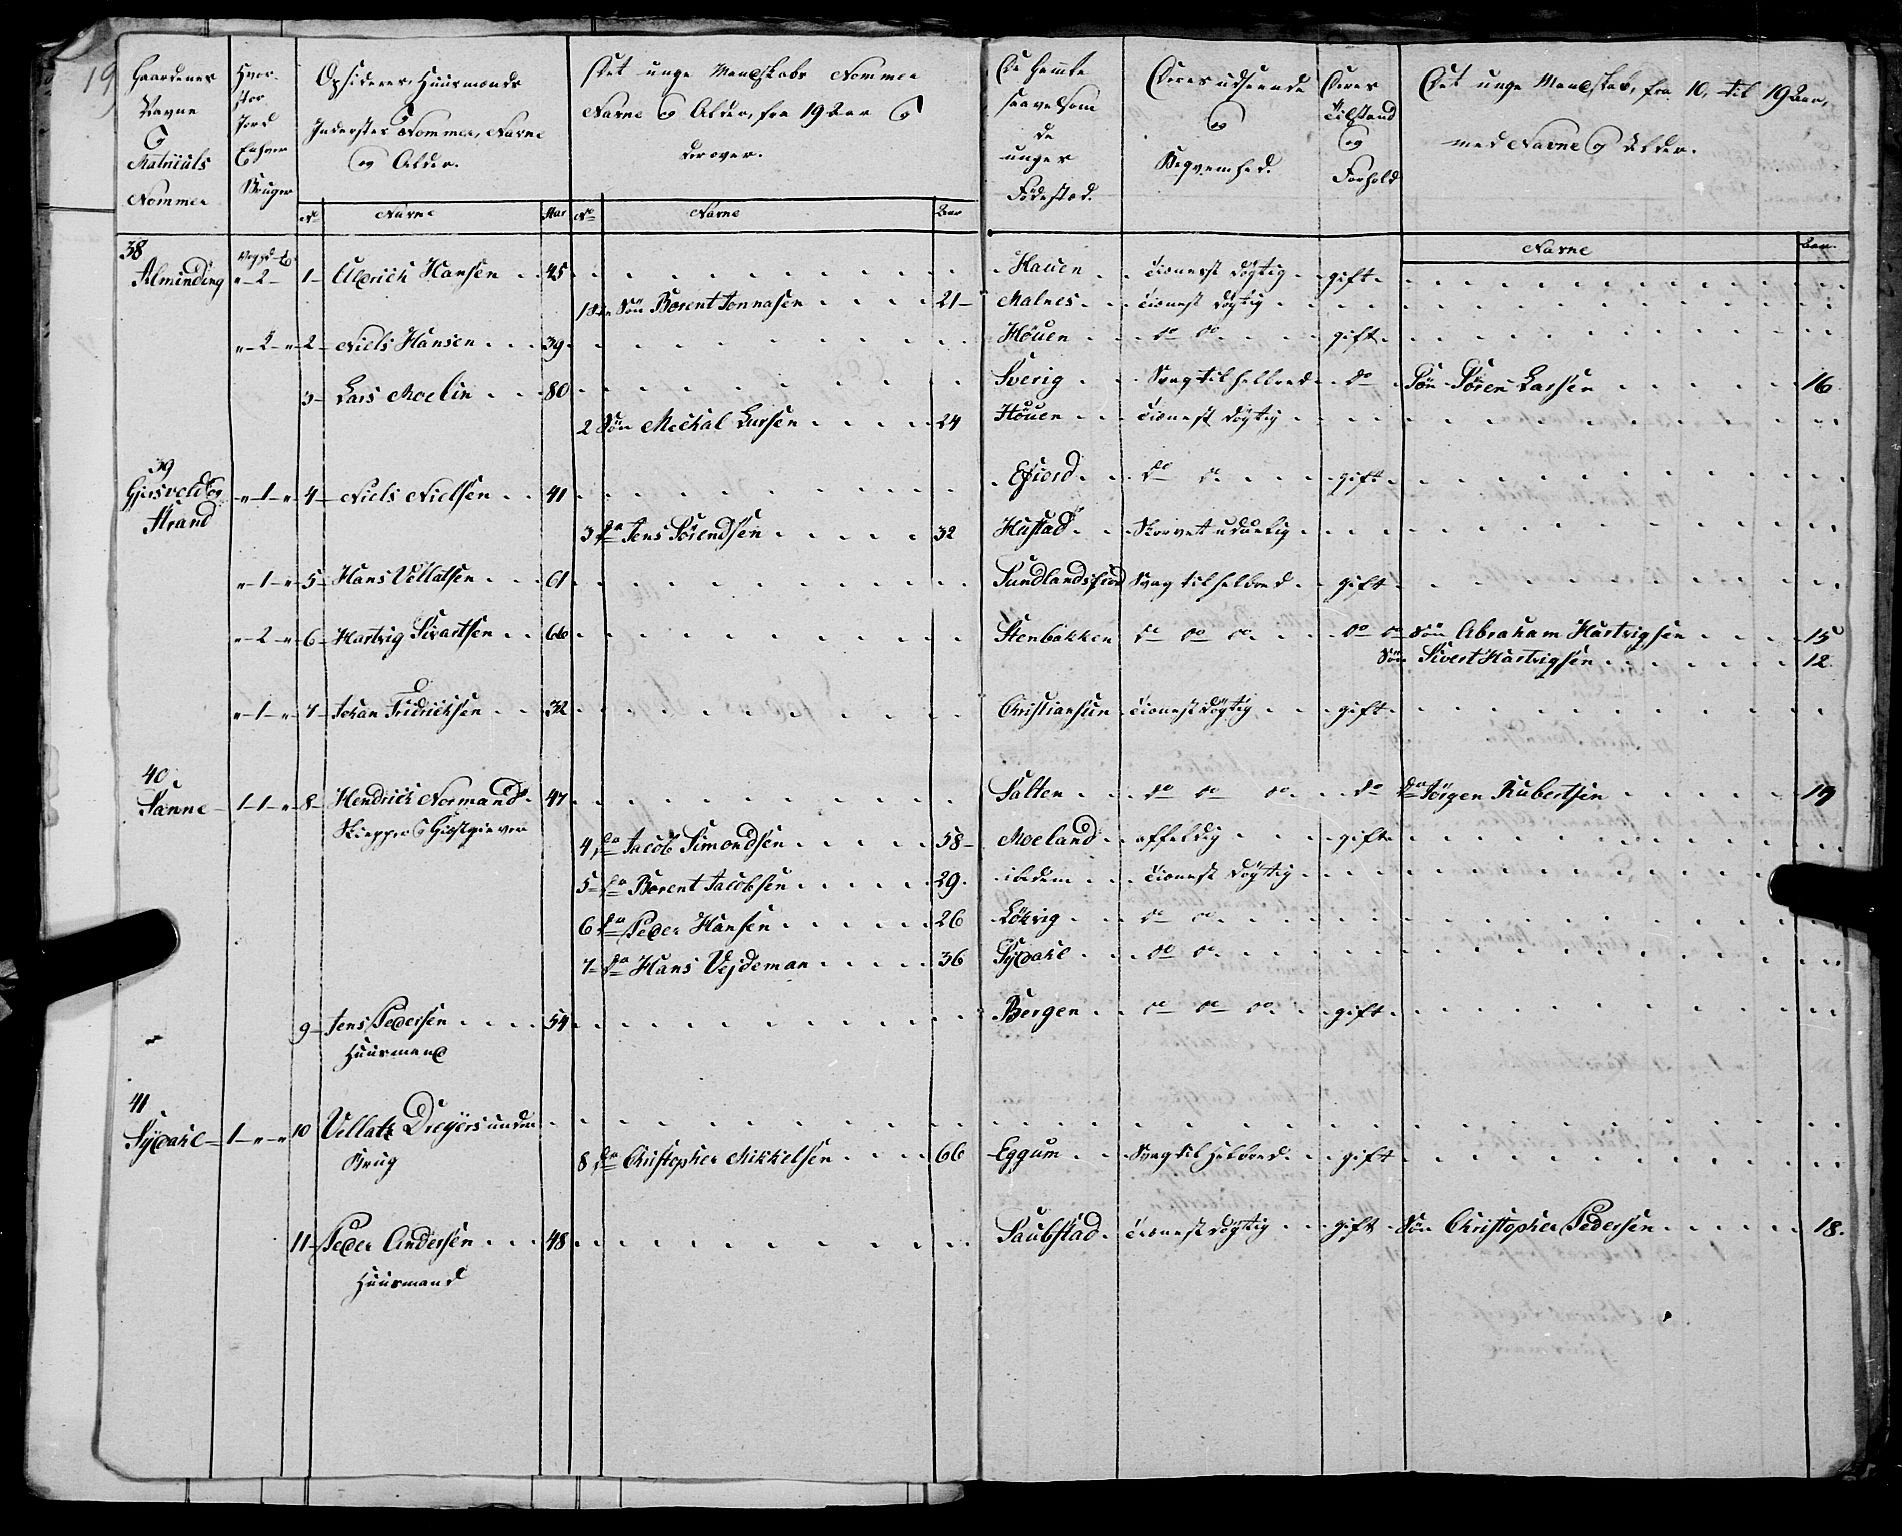 19
Gaardenes Navne Og Matriculs Nommer
Hvor stor Jord Enhver Bruger
Opsidderes, Huusmænds Inderstes Nommer, Navne og Alder.
Det unge Mandskabs Nommer Navne og Alder, fra 19 Aar Og derover.
De Gamle saavelsom de unges Födestæd.
Deres udseende og Beqvemhed.
Deres Tilstand og Forhold
Det unge Mandskab, fra 10, til 19 Aar, med Navne og Alder.
No Navne Aar No Navne Aar
Navne Aar
38
Alminding " - 2 - 1 - Uldrich Hansen 45 Hauen dienest dögtig gift
1 Sön Borent Jonnasen 21 Malnes dienest dögtig
" - 2 - " 2 - Niels Hansen 39 Höuen do do gift
3 - Lars Moelin 80 Sverig Svag til helbred do Sön Sören Larsen 16
2 Sön Mechal Larsen 24 Höuen dienest dögtig
39
Strand " - 1 - " 4 - Niels Nielsen 41 Efjord do do gift
3 do Jens Sörendsen 32 Hustad
" - 1 - " 5 - Hans Vellatsen 61 Sundlandsfiord Svag til helbred gift
" - 2 - " 6 - Hartvig Sivartsen 66 Stenbakken do do do do Sön Abraham Hartvigsen 15
Sön Sivert Hartvigsen 12
" - 1 - " 7 - Johan Fridrichsen 32 Christiansun dienest dögtig gift
40
Sanne 1 - 1 - " 8 - Hendrich Normand 47 Salten do do do do do Jörgen Rubertsen 17
Skipper Og Giestgiever
4 do Jacob Simondsen 58 Moeland affeldig gift
5 do Borent Jacobsen 29 ibidem dienest dögtig
6 do Peder Hansen 26 Lökvig do do
7 do Hans Vejdeman 36 Sydahl do do
9 - Jens Pedersen 54 Bergen do do do gift
Huusmand
41
Sydahl - 1 - " - " 10 Vellatz Dreyers under
Brug
8 do Christopher Mikkelsen 66 Eggum Svag til helbred gift
11 - Peder Andersen 48 Saubstad dienest dögtig gift Sön Christopher Pedersen 18
Huusmand